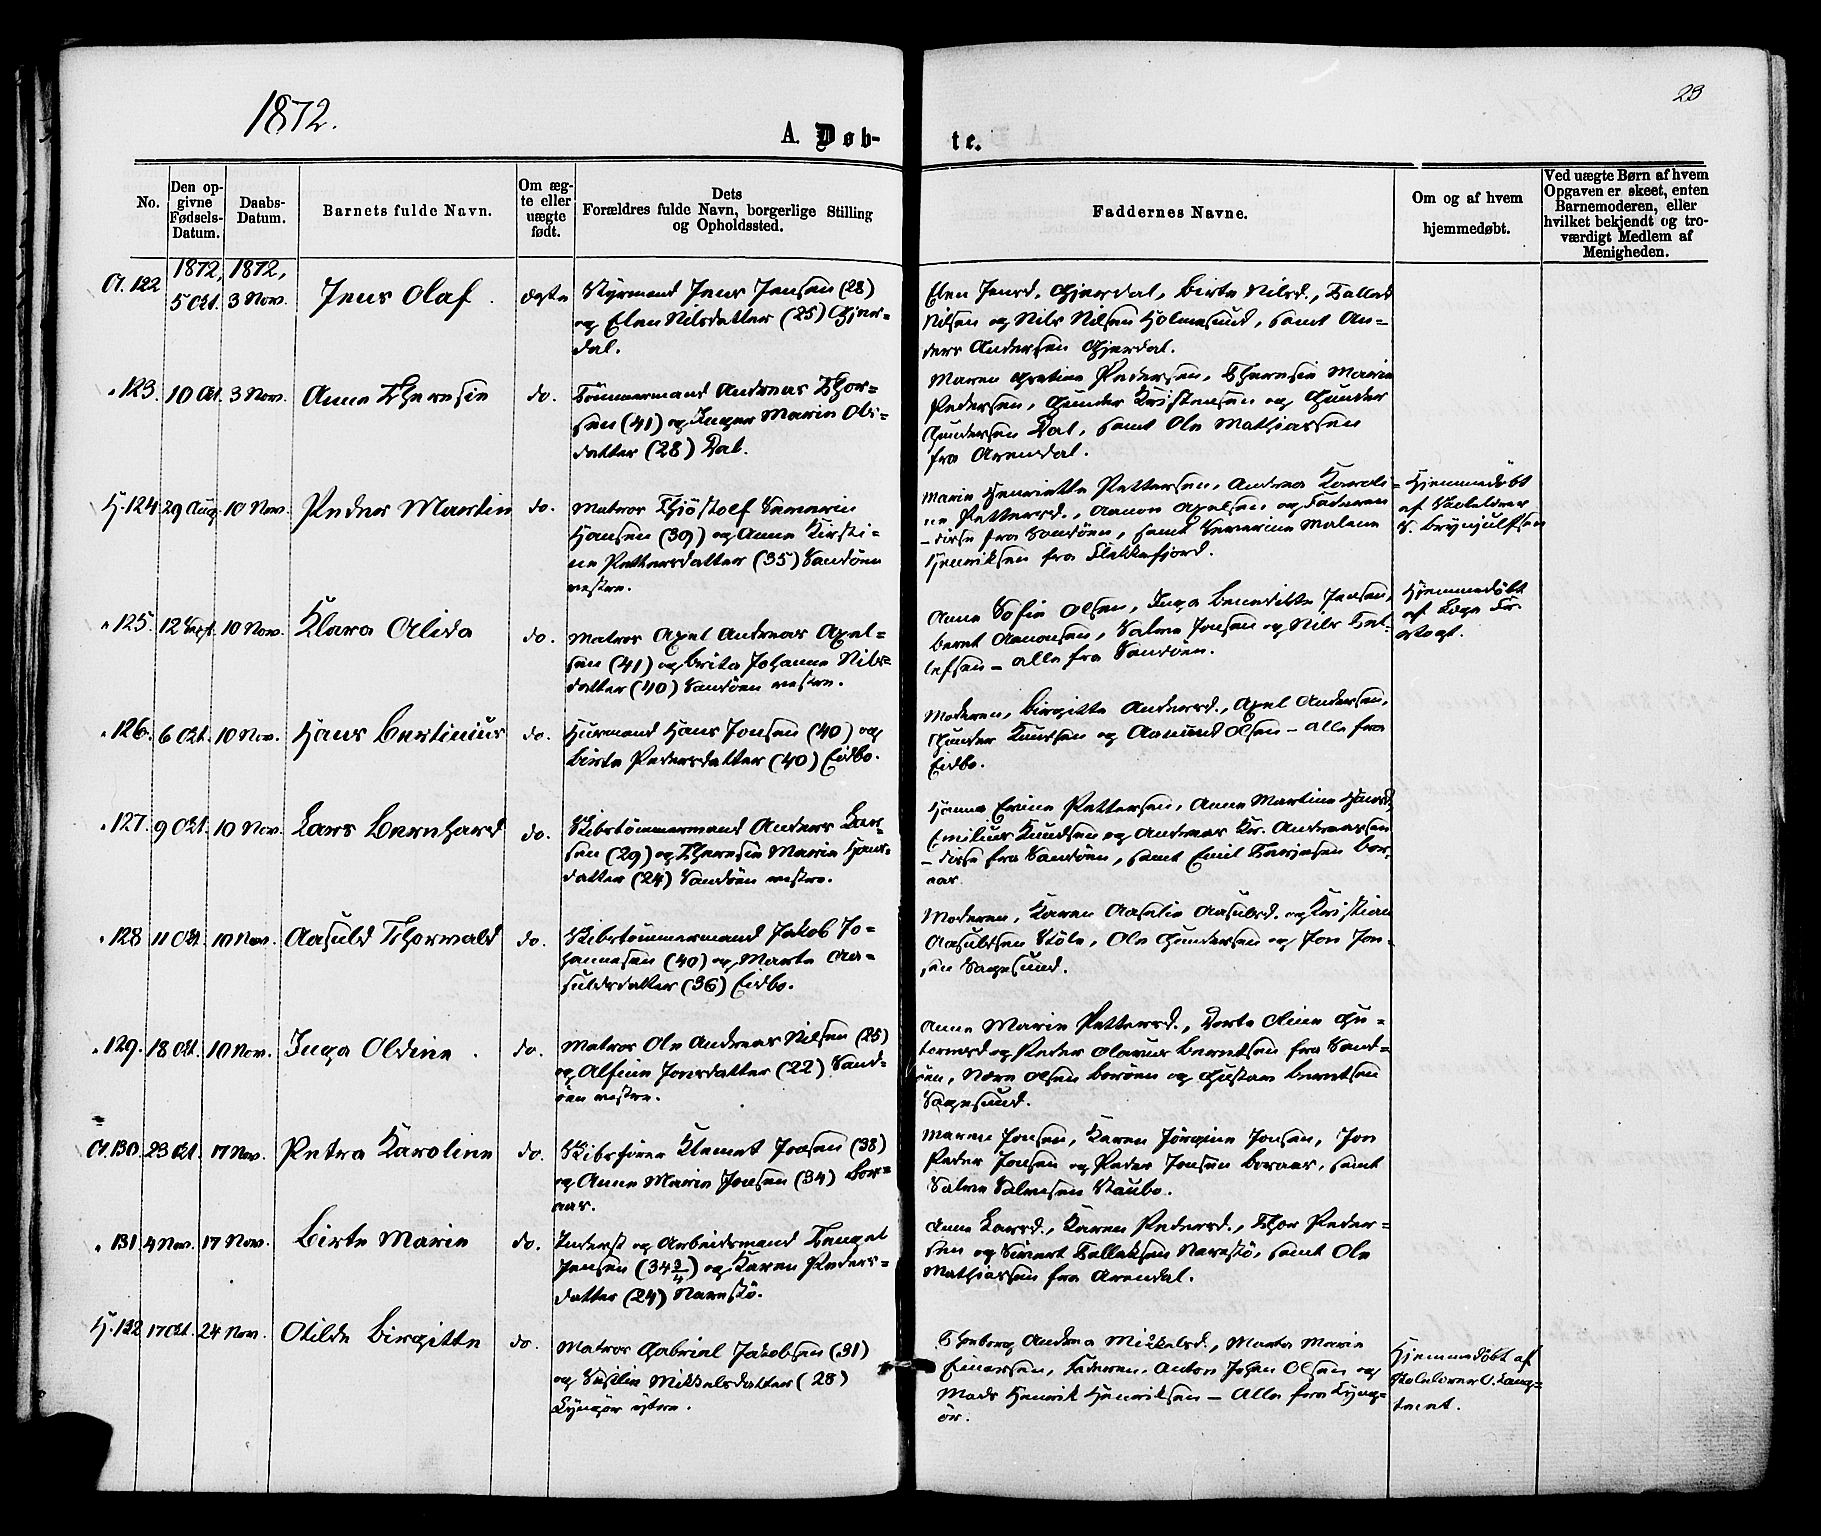 1872.
23
A. Døb-
te.
No.
Den op-
givne
Fødsels-
Datum.
Daabs-
Datum.
Barnets fulde Navn.
Om æg-
te eller
uægte
født.
Dets
Forældres fulde Navn, borgerlige Stilling
og Opholdssted.
Faddernes Navne.
Om og af hvem
hjemmedøbt.
Ved uægte Børn af hvem
Opgaven er skeet, enten
Barnemoderen, eller
hvilket bekjendt og tro-
værdigt Medlem af
Menigheden.
1872, 1872,
122 5 Okt. 3 Nov. Jens Olaf. ægte
Styrmand Jens Jensen (28)
og Elen Nilsdatter (25) Gjer-
dal.
Elen Jensd. Gjerdal, Birte Nilsd., Tallak
Nilsen og Nils Nilsen Holmesund, samt An-
ders Andersen Gjerdal.
" 123. 10 Okt. 3 Nov. Anne Theresie do.
Tømmermand Andreas Thor-
sen (41) og Inger Marie Ols-
datter (28) Dal.
Maren Gretine Pedersen, Theresie Marie
Pedersen, Gunder Kristensen og Gunder
Gundersen Dal, samt Ole Mathiassen
fra Arendal.
H. 124 29 Aug. 10 Nov. Peder Martin do.
Matros Thjøstolf Severin
Hansen (39) og Anne Kirsti-
ne Pettersdatter (35) Sandøen
vestre.
Marie Henriette Pettersen, Andrea Karoli-
ne Pettersd., Aanon Axelsen og Faderen
- disse fra Sandøen, samt Severine Malene
Henriksen fra Flekkefjord.
Hjemmedøbt
af Skolelærer
S. Brynjulfsen
" 125. 12 Sept. 10 Nov. Klara Alida do.
Matros Axel Andreas Axel-
sen (41) og Berta Johanne Nils-
datter (40) Sandøen vestre.
Anne Sofie Olsen, Inga Benedikte Jensen,
Bernt Aanonsen, Salve Jensen og Nils Det-
lefsen - alle fra Sandøen.
Hjemmedøbt
af Læge Fr.
Vogt.
" 126. 6 Okt. 10 Nov. Hans Bertinius do.
Husmand Hans Jonsen (40) og
Birte Pedersdatter (40) Eidbo.
Moderen, Birgitte Andersd., Axel Andersen,
Gunder Knutsen og Aamund Olsen - alle fra
Eidbo.
" 127. 9 Okt. 10 Nov. Lars Bernhard do.
Skibstømmermand Anders Lar-
sen (29) og Theresie Marie Hans-
datter (24) Sandøen vestre.
Hanna Erine Pettersen, Anne Martine Hansd.
Emilius Knudsen og Andreas Kr. Andreassen
- disse fra Sandøen, samt Emil Terjesen Bor-
aas.
" 128 11 Okt. 10 Nov. Aasuld Thorvald do.
Skibstømmermand Jakob Jo-
hannesen (40) og Marte Aa-
suldsdatter (36) Eidbo.
Moderen, Karen Aaselie Aasuldsd. og Kristian
Aasuldsen Støle, Ole Gundersen og Jon Jon-
sen Sagesund.
" 129. 18 Okt. 10 Nov. Inga Oldine. do.
Matros Ole Andreas Nilsen (25)
og Alfine Jonsdatter (22) Sand-
øen vestre.
Anne Marie Pettersd., Dorte Oline Gu-
tormsd og Peder Olavus Berntsen fra Sand-
øen, Nære Olsen Borøen og Gustav Berntsen
Sagesund.
130. 23 Okt. 17 Nov. Petra Karoline do.
Skibsfører Klemet Jonsen (38)
og Anne Marie Jonsen (34) Bor-
aas.
Maren Jonsen, Karen Jørgine Jonsen, Jon
Peder Jonsen og Peder Jonsen Boraas, samt
Salve Salvesen Staubo.
" 131. 4 Nov. 17 Nov. Birte Marie do.
Inderst og Arbeidsmand Tengel
Jensen (34 3/4) og Karen Peders-
datter (24) Narestø.
Anne Larsd., Karen Pedersd., Thor Peder-
sen og Sivert Tallaksen Narestø, samt Ole
Mathiassen fra Arendal.
H. 132 17 Okt. 24 Nov. Otilde Birgitte do.
Matros Gabriel Jakobsen (31)
og Sesilie Mikkelsdatter (28)
Lyngør ytre.
Theborg Andrea Mikkelsd., Marta Marie
Einersen, Faderen, Anton Johan Olsen og
Mads Henrik Henriksen - Alle fra Lyng-
ør.
Hjemmedøbt af
Skolelærer O. Lang-
tvent.